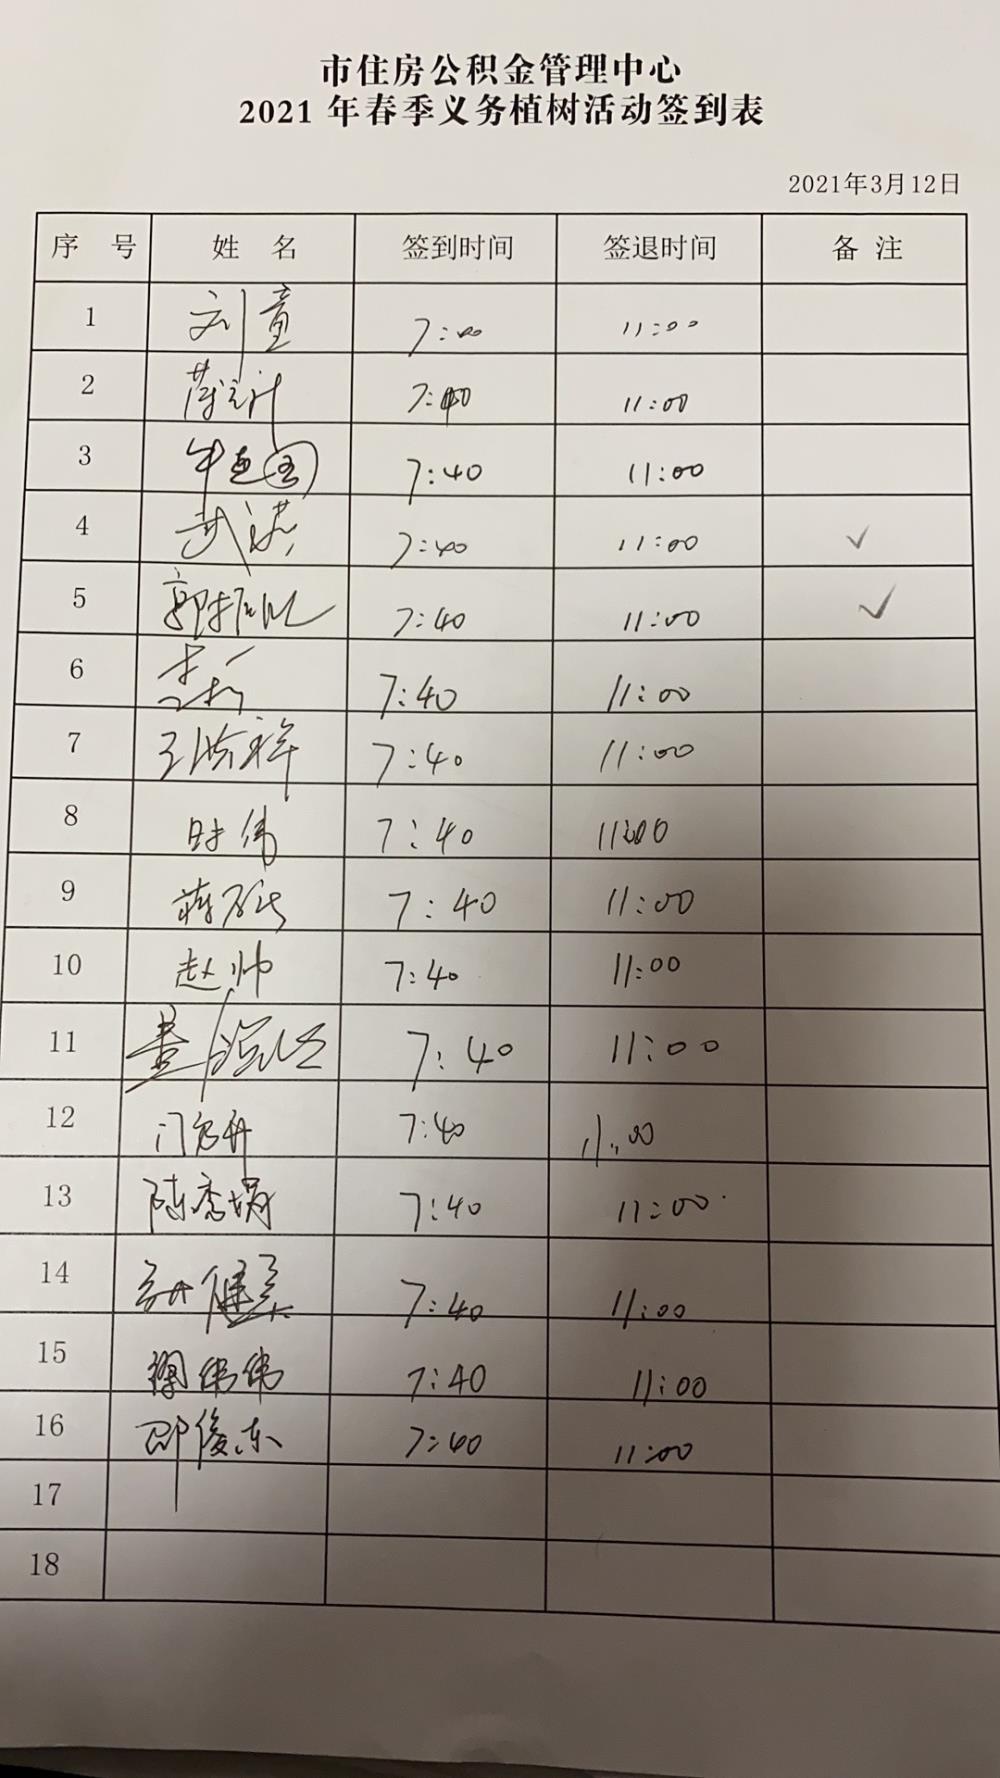 市住房公积金管理中心
2021 年春季义务植树活动签到表
2021年3月12日
序 号 姓 名 签到时间 签退时间 备 注
1 刘童 7:40 11:00
2 7:40 11:00
3 7:40 11:00
4 武洪 7:40 11:00 ✓
5 郭振 7:40 11:00 ✓
6 7:40 11:00
7 王 祥 7:40 11:00
8 时伟 7:40 11:00
9 蒋 7:40 11:00
10 赵帅 7:40 11:00
11 7:40 11:00
12 门 7:40 11:00
13 陈秀娟 7:40 11:00
14 健美 7:40 11:00
15 伟伟 7:40 11:00
16 邵俊东 7:40 11:00
17
18